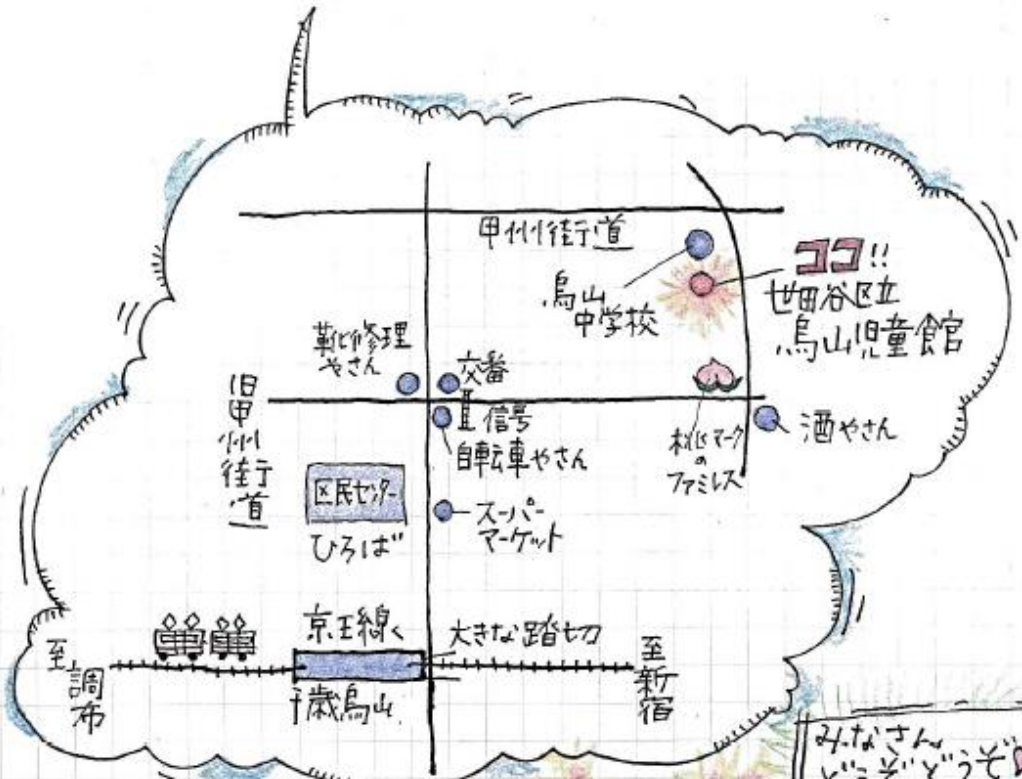 甲州街道
烏山
中学校
ココ!!
世田谷区立
烏山児童館
靴修理
やさん
交番
信号
自転車やさん
旧甲州街道
桃マーク
の
ファミレス
酒やさん
区民センター
ひろば
スーパー
マーケット
京王線
大きな踏切
至調布
千歳烏山
至新宿
みなさん
どうぞどうぞ